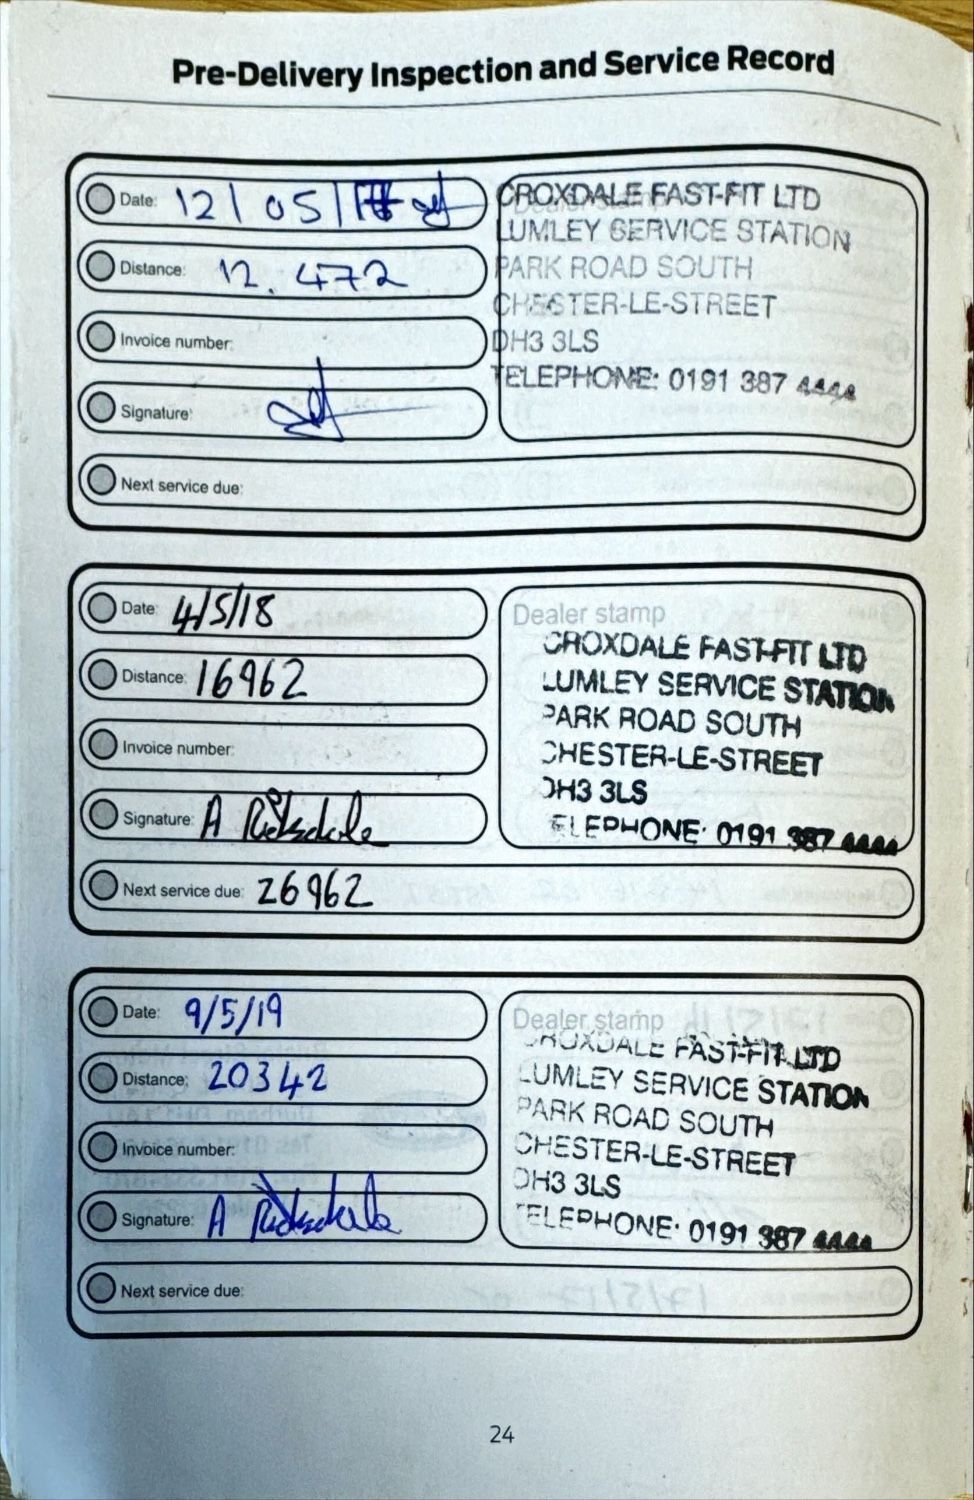 Pre-Delivery Inspection and Service Record
Date: 12/05/
CROXDALE FAST-FIT LTD
Dealer stamp
LUMLEY SERVICE STATION
Distance: 12.472
PARK ROAD SOUTH
CHESTER-LE-STREET
Invoice number:
DH3 3LS
TELEPHONE: 0191 387 4444
Signature:
Next service due:
Date: 4/5/18
Dealer stamp
CROXDALE FAST-FIT LTD
Distance: 16962
LUMLEY SERVICE STATION
PARK ROAD SOUTH
Invoice number:
CHESTER-LE-STREET
DH3 3LS
Signature: A
TELEPHONE: 0191 387 4444
Next service due: 26962
Date: 9/5/19
Dealer stamp
CROXDALE FAST-FIT LTD
Distance: 20342
LUMLEY SERVICE STATION
PARK ROAD SOUTH
Invoice number:
CHESTER-LE-STREET
DH3 3LS
Signature: A
TELEPHONE: 0191 387 4444
Next service due:
24